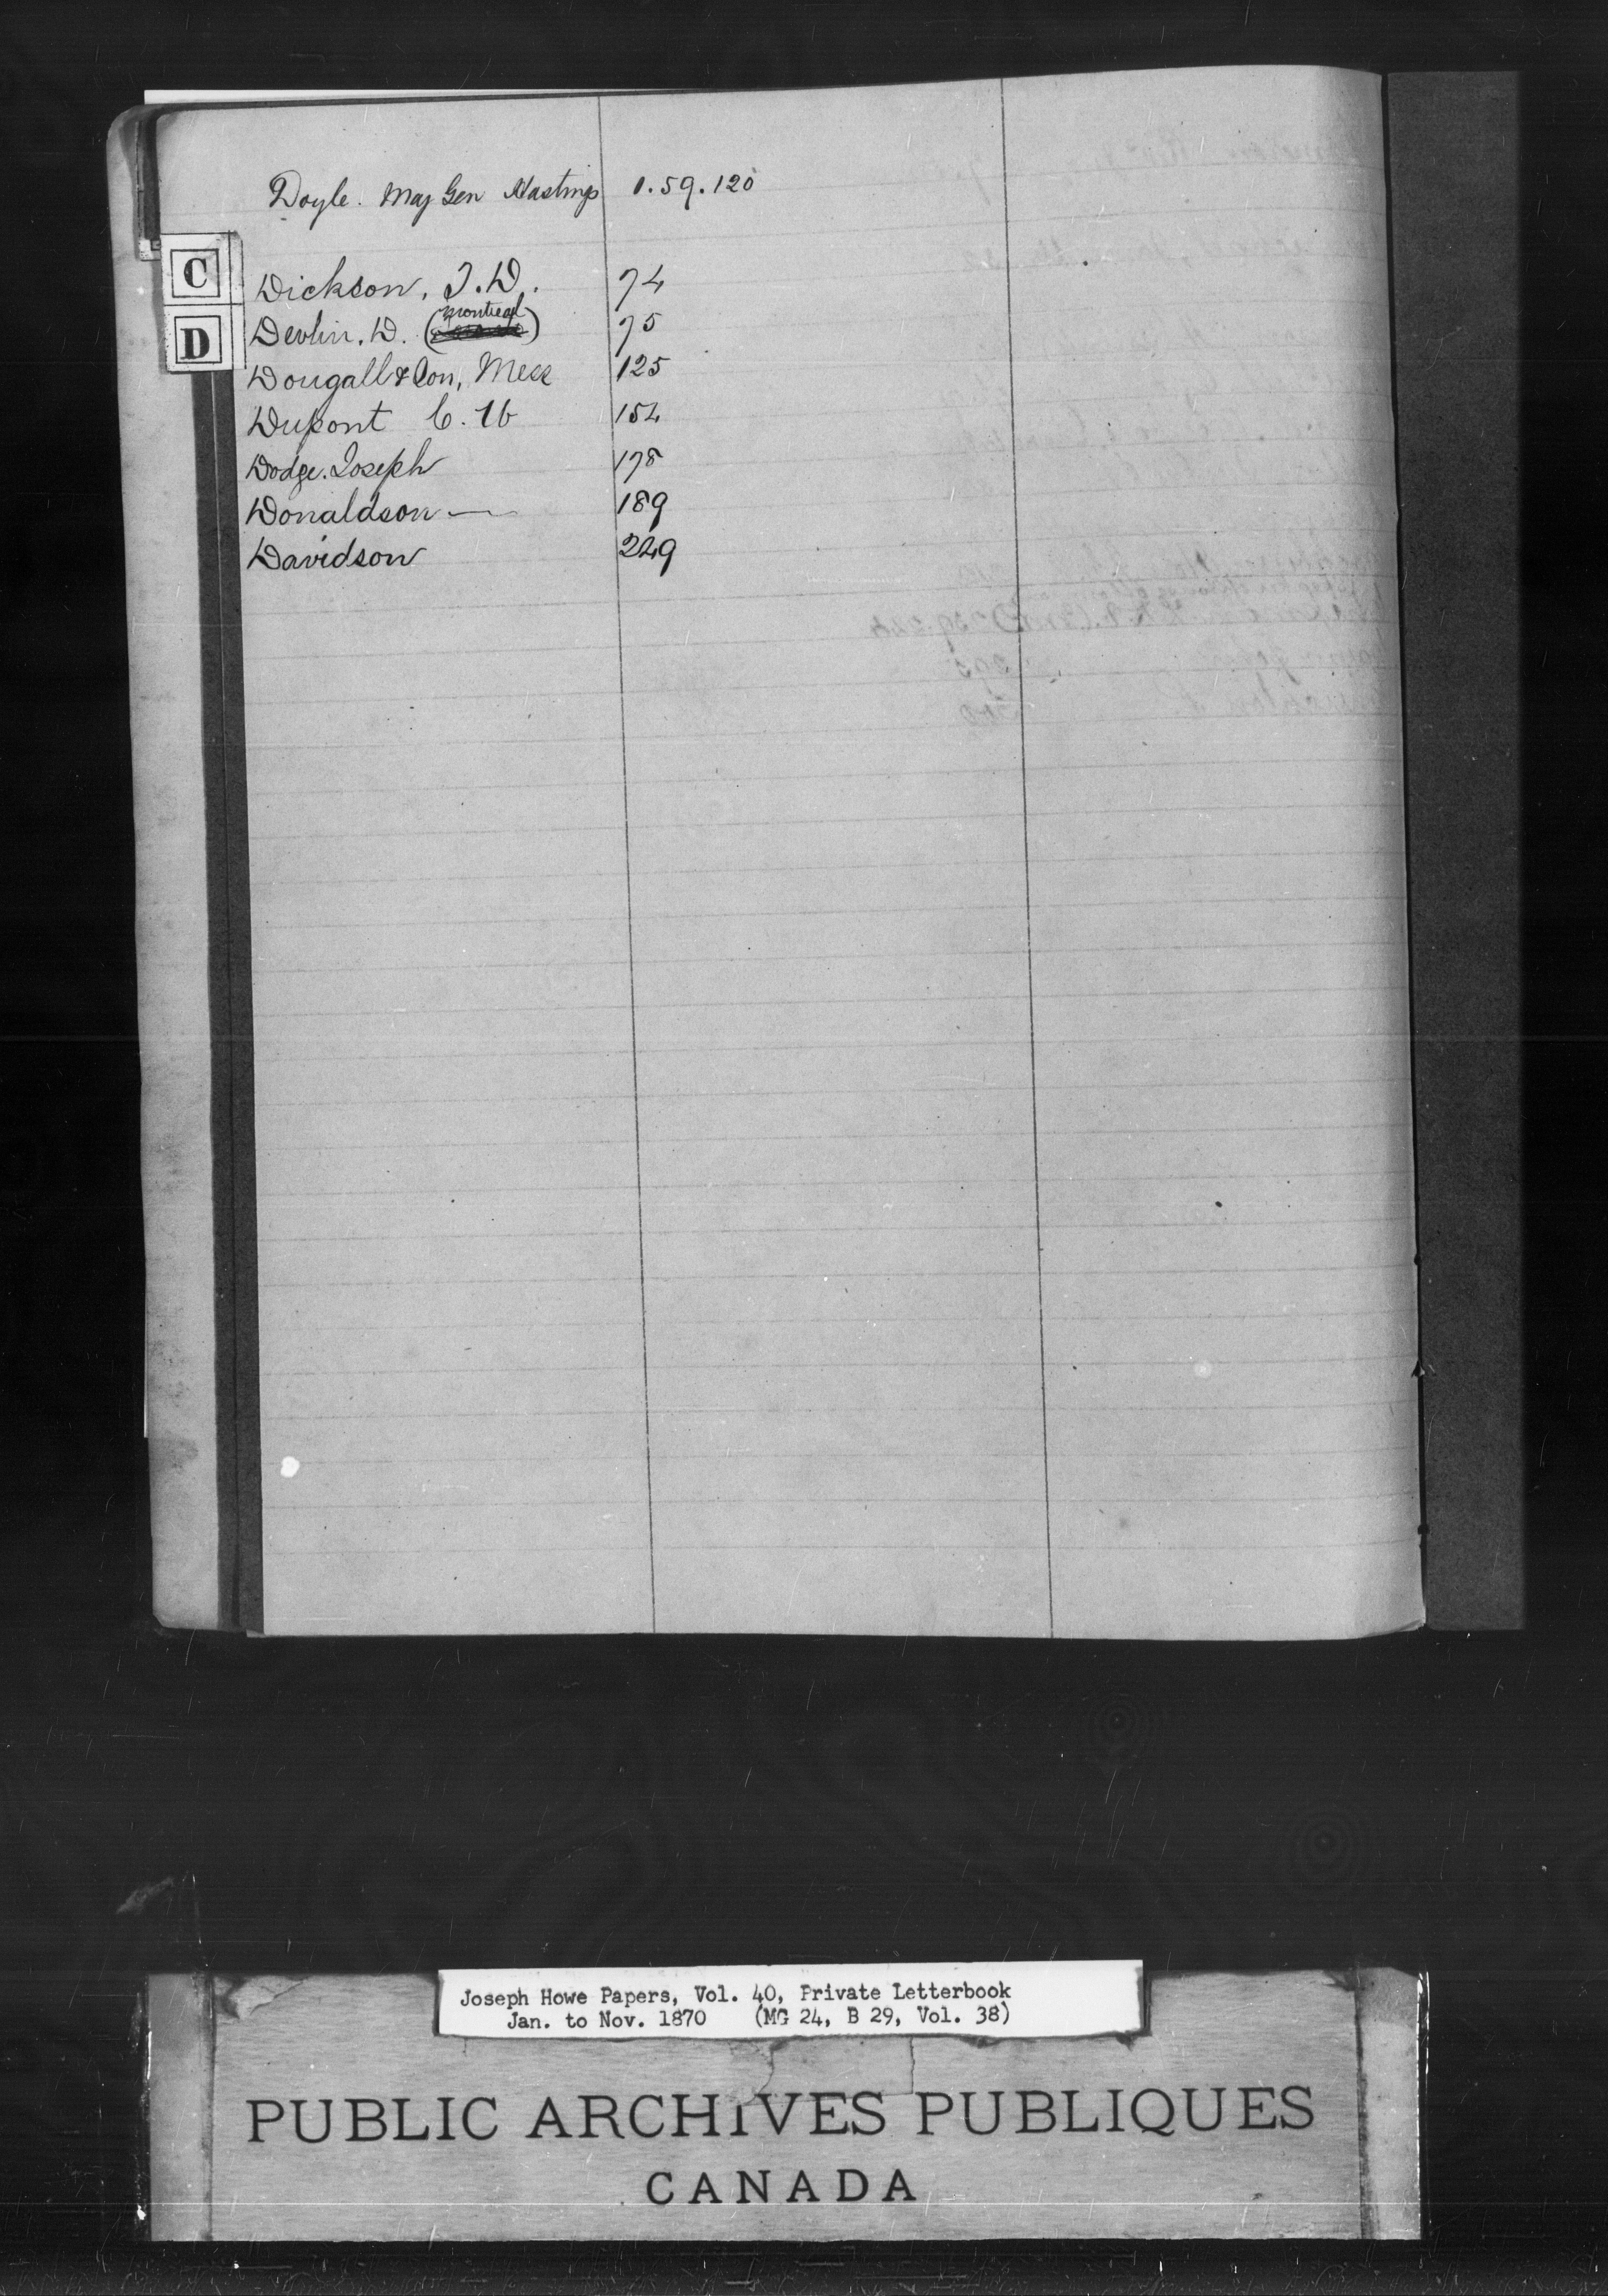 Doyle. Maj Gen Hastings 1.59.120
C
Dickson, J.D. 74
Montreal
Devlin. D. ( ) 75
D
Dougall & Son, Mess 125
Dupont C. H 154
Dodge. Joseph 178
Donaldson — 189
Davidson 229
Joseph Howe Papers, Vol. 40, Private Letterbook
Jan. to Nov. 1870 (MG 24, B 29, Vol. 38)
PUBLIC ARCHIVES PUBLIQUES
CANADA